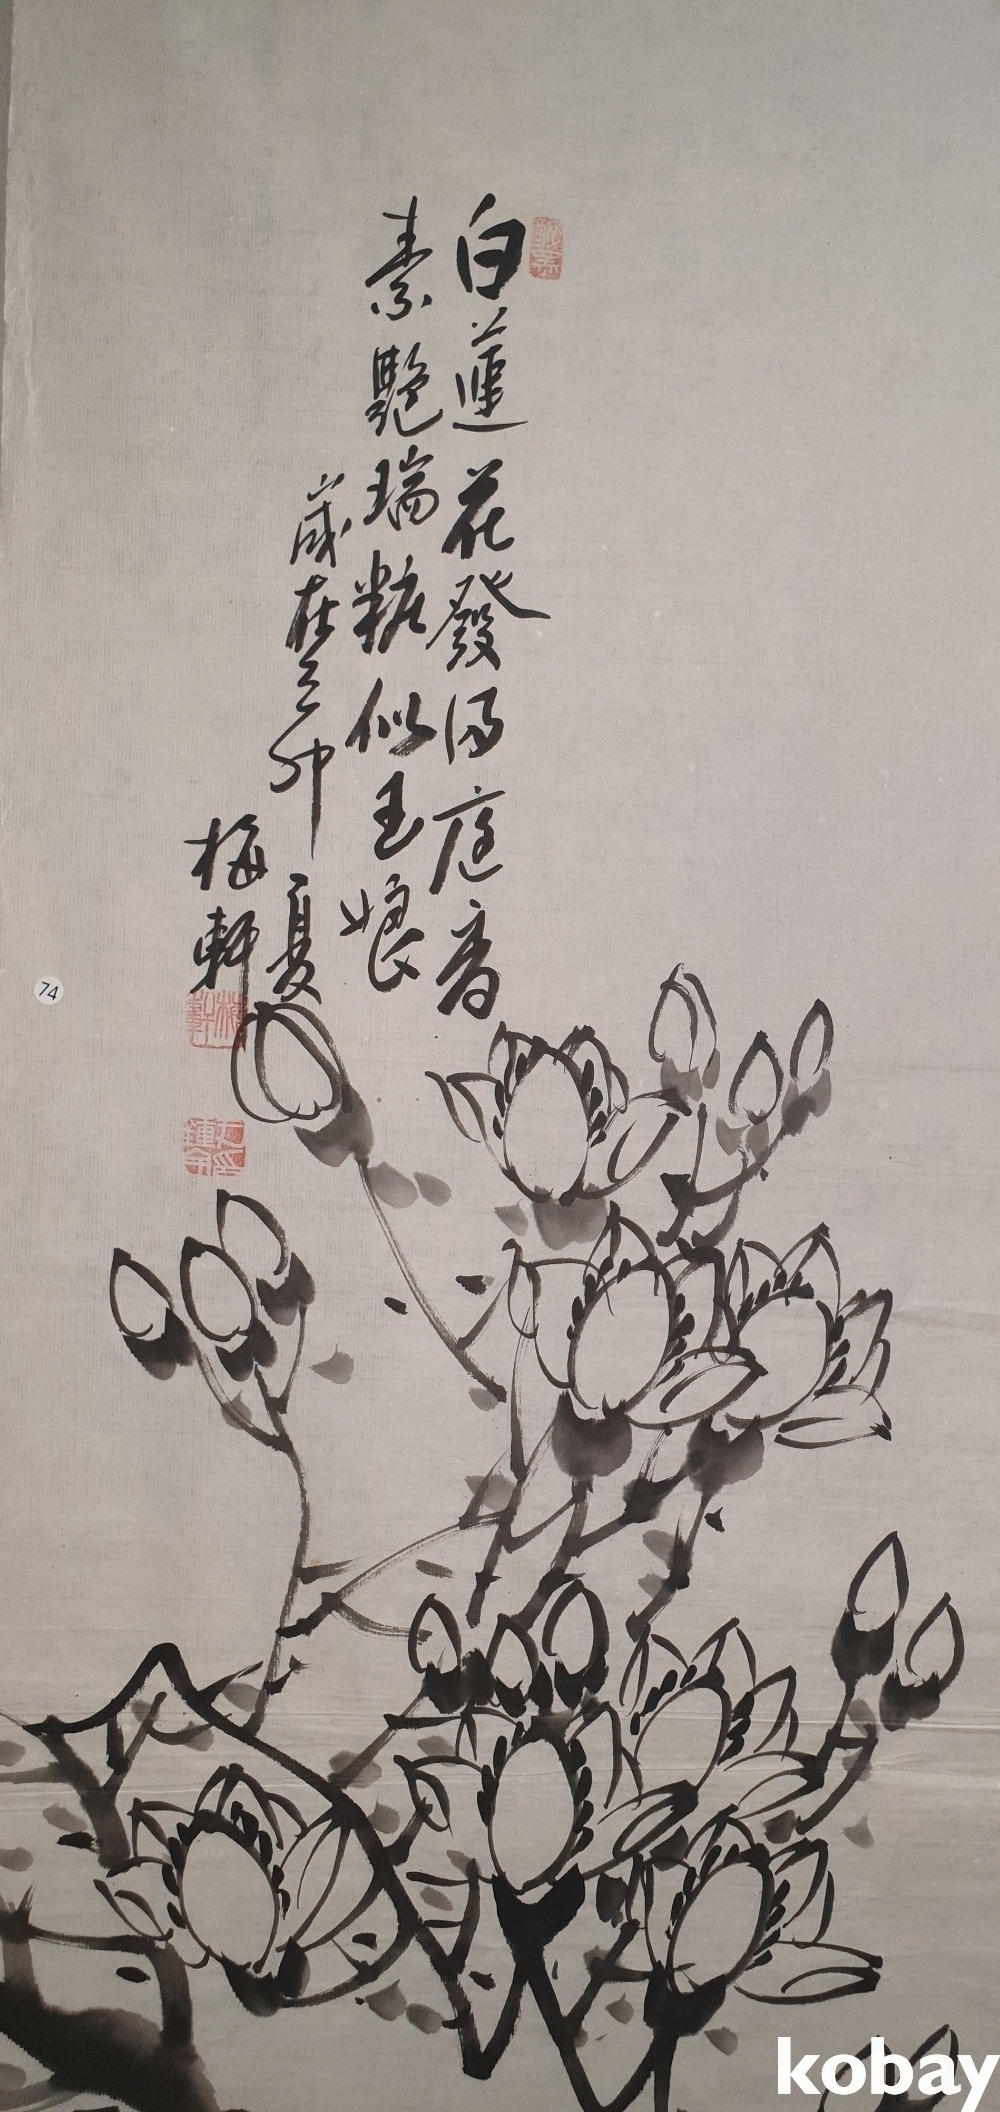 白蓮花發滿庭香
素艶瑞粧似玉娘
歲在乙卯夏
梅軒
74
kobay